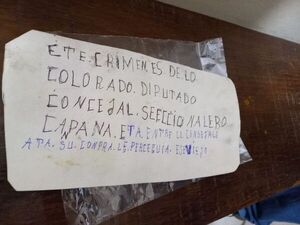 ETE. CRIMENES DE LO.
COLORADO. DIPUTADO
CONCEJAL. SEFCCIONALERO
CAPANA. ETA. ENTRE LE
ATA. SU. CONTRA. LE. PERCEGUIA.